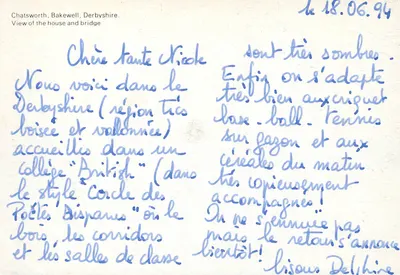 Chatsworth, Bakewell, Derbyshire.
View of the house and bridge
le 18.06.94
Chère tante Nicole
Nous voici dans le
Derbyshire (région très
boisée et vallonnée)
accueillies dans un
collège "British" (dans
le style "Cercle des
Poètes Disparus" où le
bois, les corridors
et les salles de classe
sont très sombres.
Enfin on s'adapte
très bien aux criquet
base-ball. tennis
sur gazon et aux
céréales du matin
très copieusement
accompagnés!
On ne s'ennuie pas
mais le retour s'annonce
bientôt!
bisous Delphine